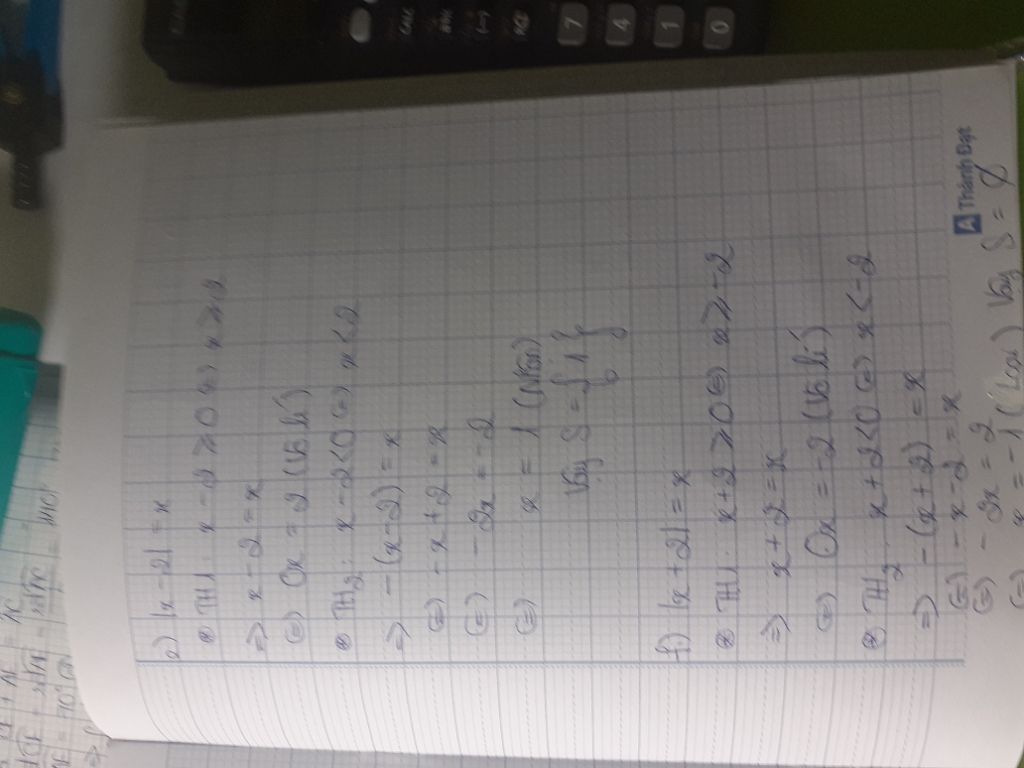 e) |x - 2| = x
⊛ TH1: x - 2 ⩾ 0 (=) x ⩾ 2
=> x - 2 = x
(=) 0x = 2 (Vô lí)
⊛ TH2: x - 2 < 0 (=) x < 2
=> - (x - 2) = x
(=) - x + 2 = x
(=) - 2x = -2
(=) x = 1 (Nhận)
Vậy S = {1}
f) |x + 2| = x
⊛ TH1: x + 2 ⩾ 0 (=) x ⩾ -2
=> x + 2 = x
(=) 0x = -2 (Vô lí)
⊛ TH2: x + 2 < 0 (=) x < -2
=> - (x + 2) = x
(=) - x - 2 = x
(=) - 2x = 2
(=) x = -1 (Loại) Vậy S = ∅
A Thành Đạt
7
4
1
0